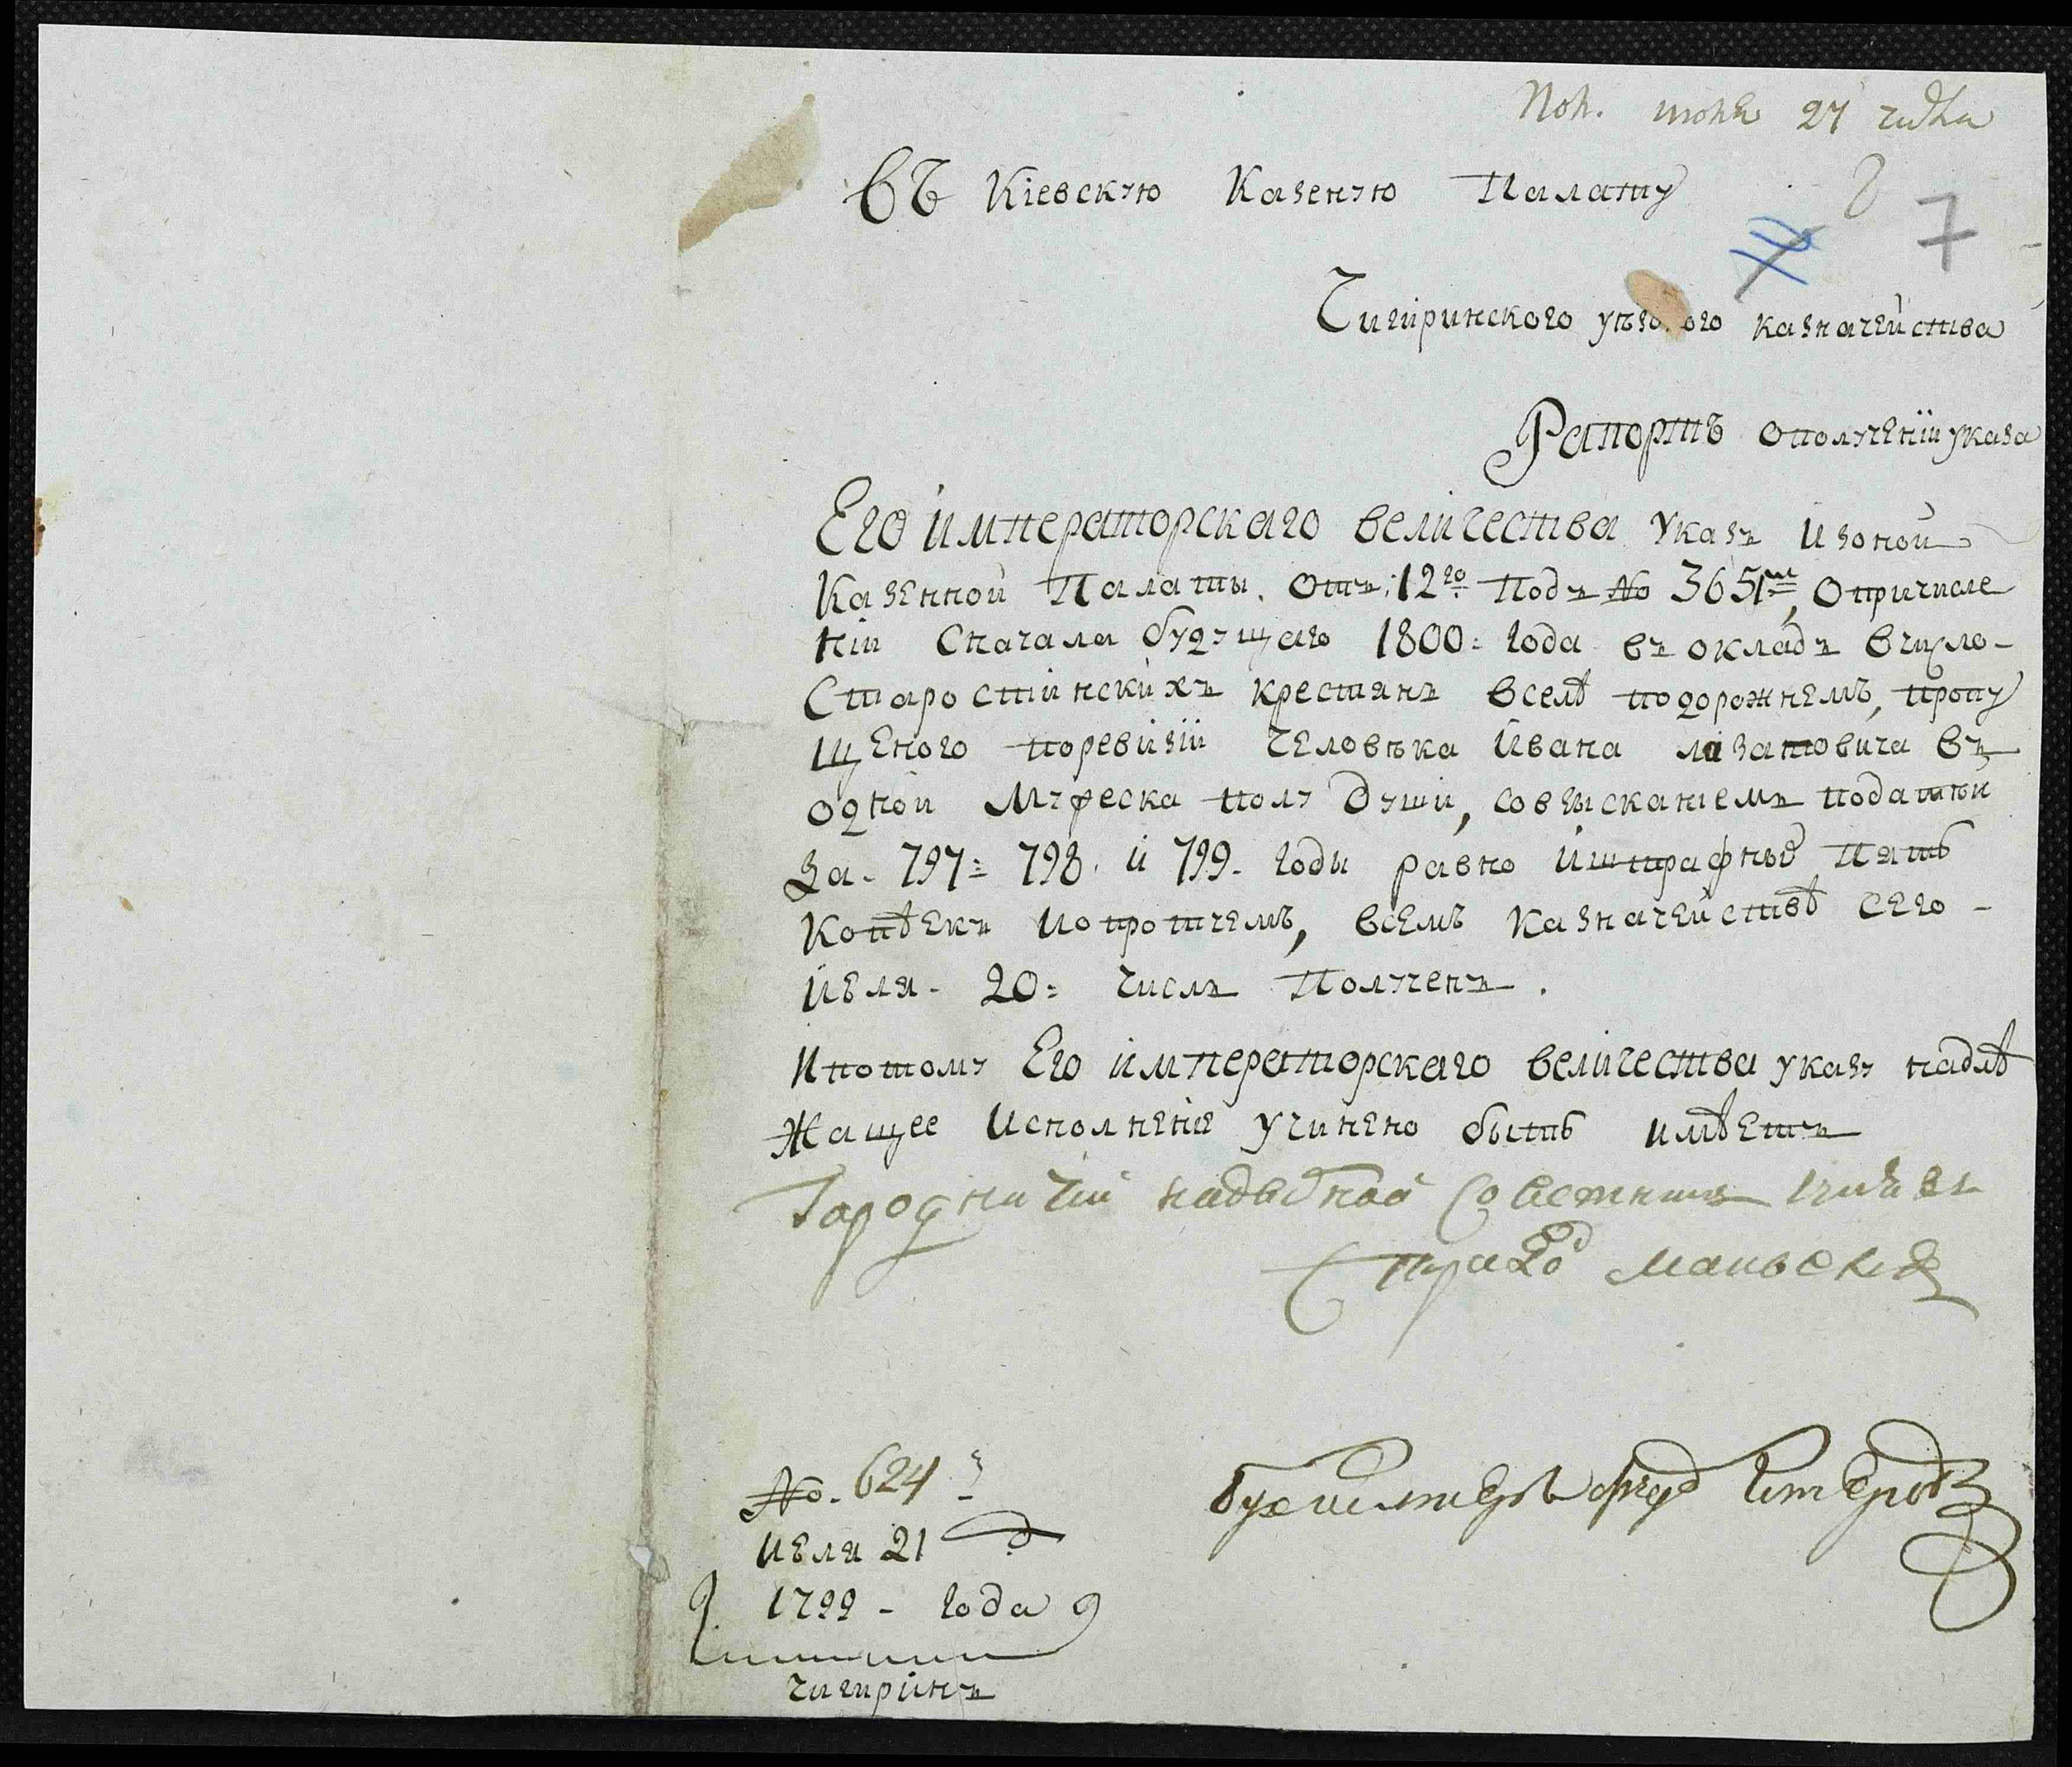 Пол. июля 27 числа
7
Въ Кіевскую Казеную Палату
Чигиринского уѣздного казначейства
Рапортъ ополученіи указа
Его императорскаго величества указъ изоной
Казенной Палаты. Отъ: 12го Подъ № 3651м, Опричисле
ніи Сначала будущаго 1800: года въ окладъ вчисло-
Старостинскихъ крестянъ вселѣ подорожнемъ, пропу
щеного поревизіи человѣка Ивана лазановича въ
одной Мужеска полу души, совзысканіемъ податей
За- 797: 798. и 799. годы равно иштрафные Пять
Копѣекъ Ипротчемъ, всемъ казначействѣ сего -
Июля - 20: числа Полученъ.
Ипотому Его императорскаго величества указу надлѣ
жащее Исполненіе учинено быть имѣетъ
Городничий надворной Советникъ
бухгалтеръ
№. 624
Июля 21
1799 - года
чигиринъ